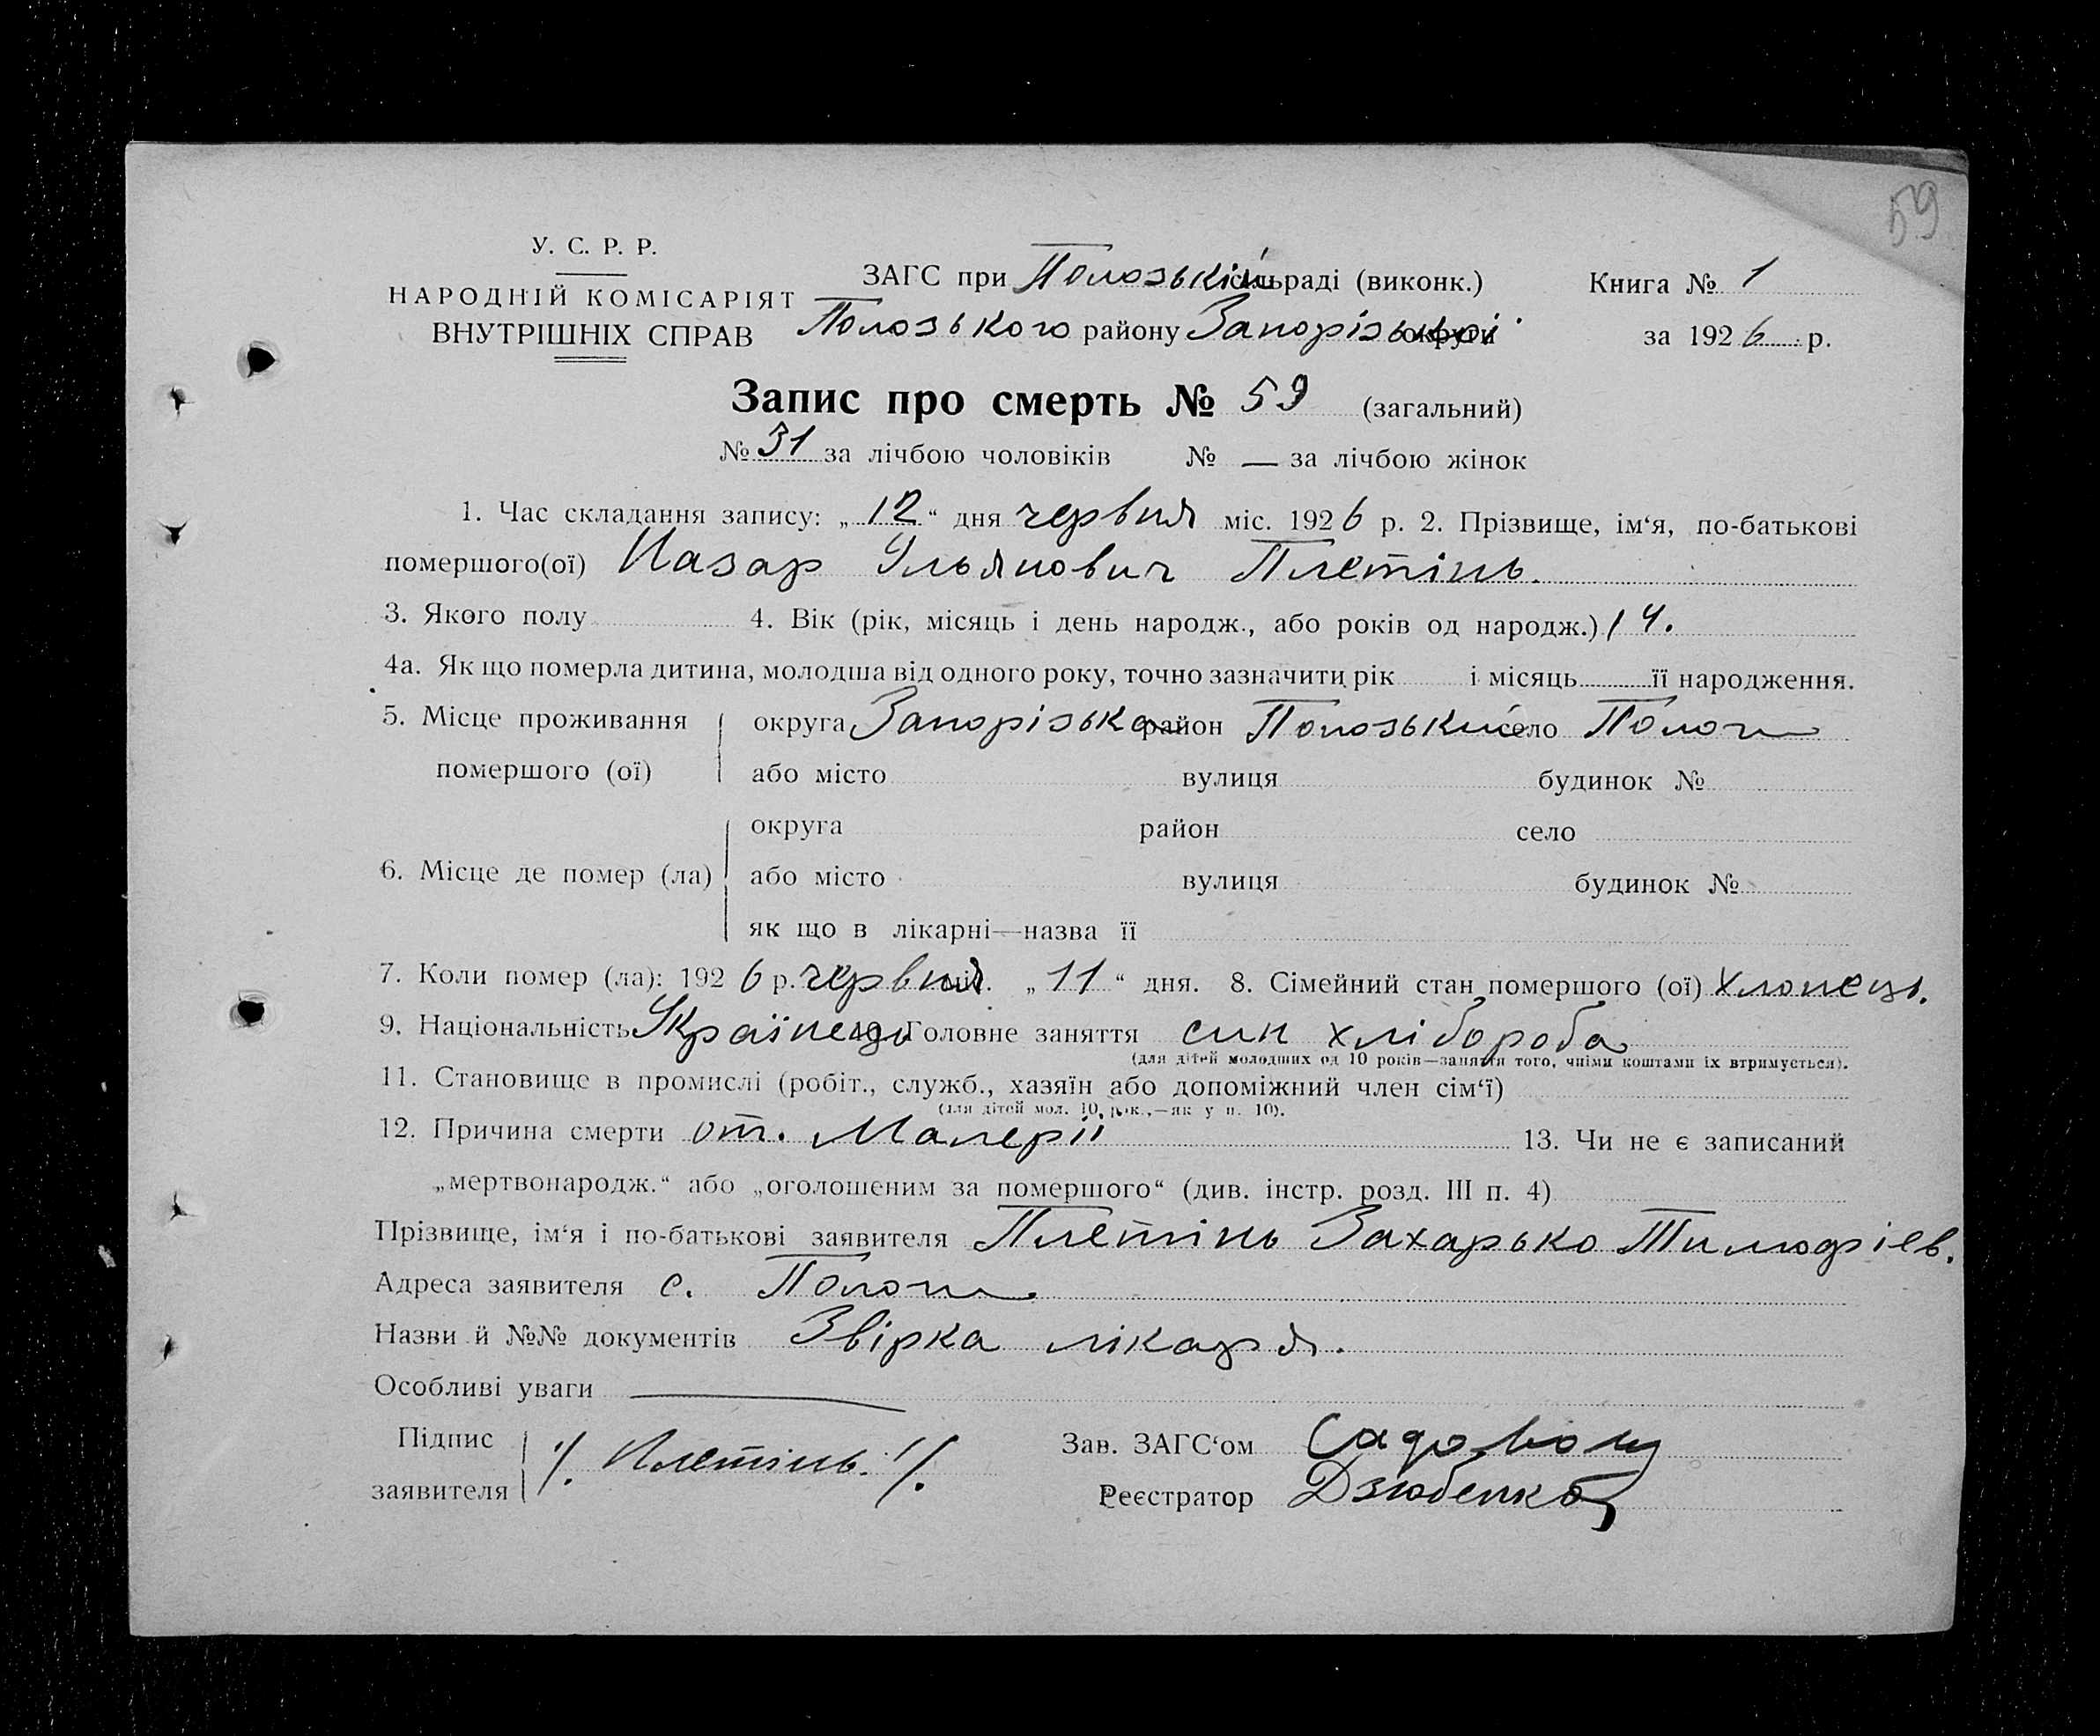 59
У. С. Р. Р.
НАРОДНІЙ КОМІСАРІЯТ
ВНУТРІШНІХ СПРАВ
ЗАГС при Полозькій сільраді (виконк.)
Полозького району Запорізької округи
Книга № 1
за 1926 р.
Запис про смерть № 59 (загальний)
№ 31 за лічбою чоловіків № — за лічбою жінок
1. Час складання запису: „12“ дня червня міс. 1926 р. 2. Прізвище, ім‘я, по-батькові
помершого(ої) Назар Ульянович Плетінь.
3. Якого полу 4. Вік (рік, місяць і день народж., або років од народж.) 14.
4а. Як що померла дитина, молодша від одного року, точно зазначити рік і місяць її народження.
5. Місце проживання округа Запорізька район Полозький село Пологи
помершого (ої) або місто вулиця будинок №
округа район село
6. Місце де помер (ла) або місто вулиця будинок №
як що в лікарні—назва її
7. Коли помер (ла): 1926 р. червня міс. „11“ дня. 8. Сімейний стан помершого (ої) хлопець.
9. Національність Українець 10. Головне заняття син хлібороба
(для дітей молодших од 10 років—заняття того, чиїми коштами їх втримується).
11. Становище в промислі (робіт., служб., хазяїн або допоміжний член сім‘ї)
(для дітей мол. 10 рок.,—як у п. 10).
12. Причина смерти от. Малерії 13. Чи не є записаний
„мертвонародж.“ або „оголошеним за помершого“ (див. інстр. розд. III п. 4)
Прізвище, ім‘я і по-батькові заявителя Плетінь Захарько Тимофіев.
Адреса заявителя с. Пологи
Назви й №№ документів Звірка лікаря.
Особливі уваги —
Підпис
заявителя /. Плетінь. /.
Зав. ЗАГС‘ом
Реєстратор Дзюбенко